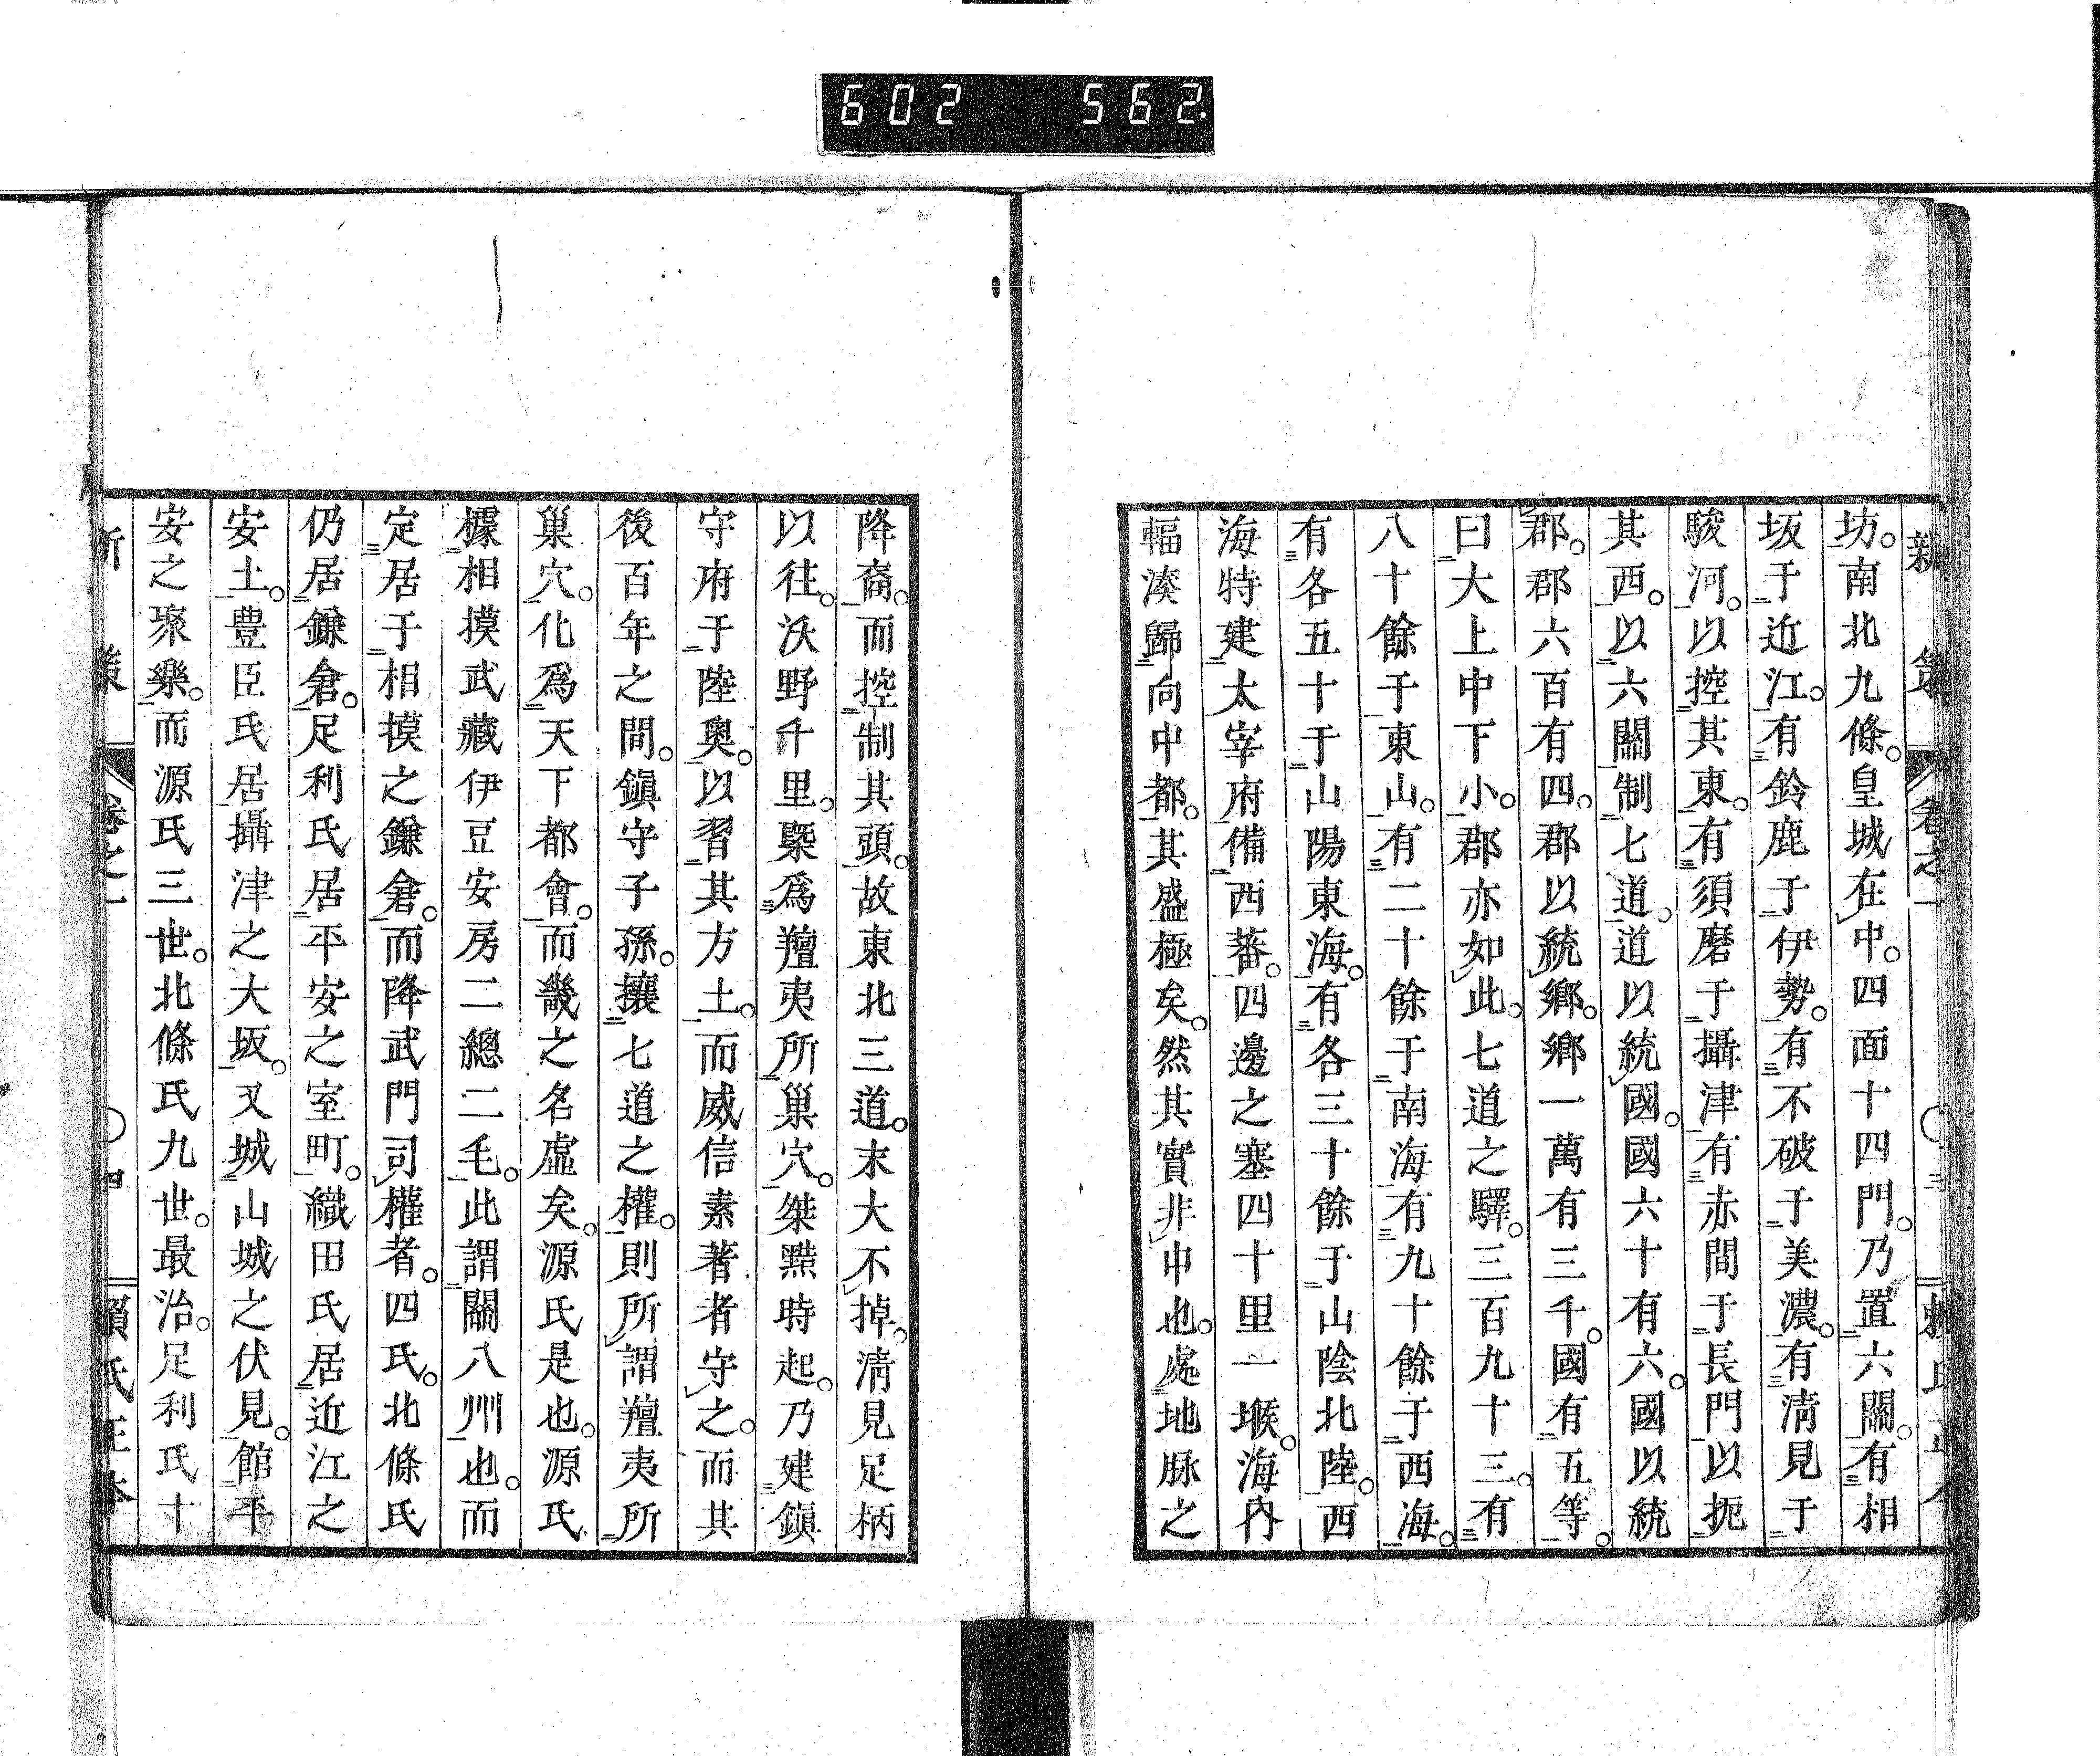 602 562
新策 卷之一 三 賴氏正本
坊。南北九條。皇城在中。四面十四門。乃置六關。有相
坂于近江。有鈴鹿于伊勢。有不破于美濃。有清見于
駿河。以控其東。有須磨于攝津有赤間于長門以扼
其西。以六關制七道。道以統國。國六十有六。國以統
郡。郡六百有四。郡以統鄉。鄉一萬有三千。國有五等。
曰大上中下小。郡亦如此。七道之驛。三百九十三。有
八十餘于東山。有二十餘于南海有九十餘于西海。
有各五十于山陽東海。有各三十餘于山陰北陸。西
海特建太宰府備西蕃。四邊之塞四十里一堠。海內
輻湊歸向中都。其盛極矣。然其實非中也。處地脉之
降裔。而控制其頭。故東北三道。末大不掉。清見足柄
以往。沃野千里。槩爲羶夷所巢穴。桀黠時起。乃建鎭
守府于陸奧。以習其方土。而威信素著者守之。而其
後百年之間。鎭守子孫。攘七道之權。則所謂羶夷所
巢穴。化爲天下都會。而畿之名虛矣。源氏是也。源氏
據相摸武藏伊豆安房二總二毛。此謂關八州也。而
定居于相摸之鎌倉。而降武門司權者。四氏。北條氏
仍居鎌倉。足利氏居平安之室町。織田氏居近江之
安土。豊臣氏居攝津之大坂。又城山城之伏見。館平
安之聚樂。而源氏三世。北條氏九世。最治。足利氏十
新策 卷之一 四 賴氏正本